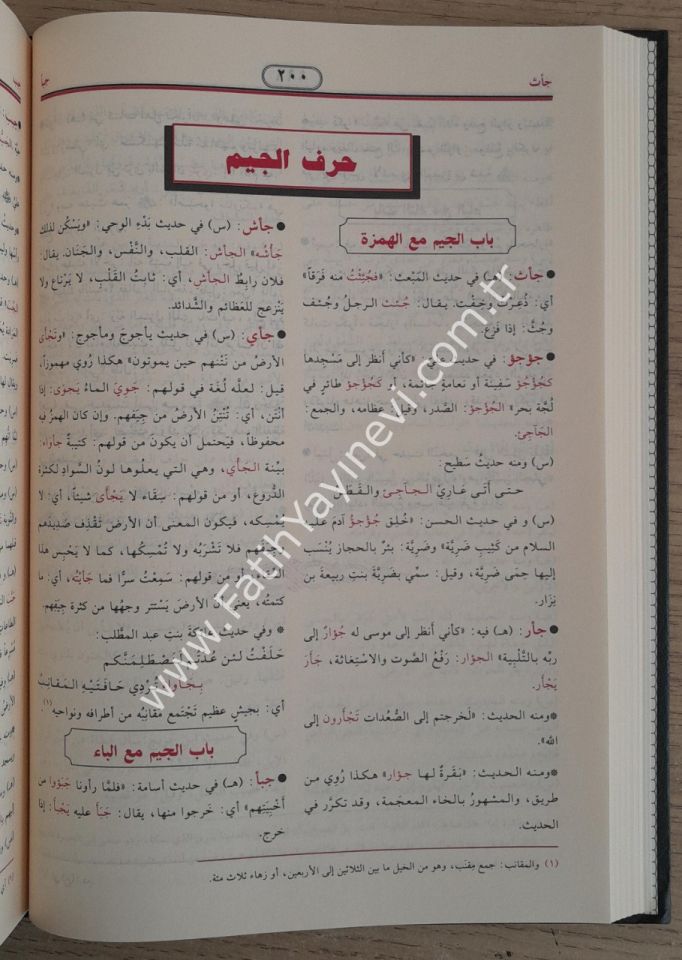 جأث
٢٠٠
جبأ
حرف الجيم
باب الجيم مع الهمزة
● جأث: (هـ) في حديث المَبْعث: «فجُئِثْتُ منه فَرَقاً»
أي: ذُعِرْت وخِفْت. يقال: جُئث الرجلُ وجُئف
وجُثّ: إذا فَزِع.
● جؤجؤ: في حديث عليّ: «كأني أنظر إلى مَسْجِدها
كجُؤْجُؤ سَفِينة أو نَعامةٍ جاثمة، أو كجُؤجُؤ طائر في
لُجَّة بحر» الجُؤجُؤ: الصَّدر، وقيل: عظامه، والجمع:
الجآجئ.
(س) ومنه حديثُ سَطيح:
حتى أتَى عاري الجآجئ والقَطَن
(س) و في حديث الحسن: «خُلق جُؤجُؤ آدمَ عليه
السلام من كَثِيبِ ضَرِيَّة» وضَرِيَّة: بئرٌ بالحجاز يُنْسَب
إليها حِمَى ضَرِيَّة، وقيل: سمِّي بضَرِيَّةَ بنتِ ربيعة بن
نِزار.
● جأر: (هـ) فيه: «كأني أنظر إلى موسى له جُؤارٌ إلى
ربّه بالتَّلْبِية» الجؤار: رَفْعُ الصَّوت والاسْتِغاثة، جَأَرَ
يَجْأَر.
*ومنه الحديث: «لَخرجتم إلى الصُّعُدات تَجْأَرون إلى
الله».
*ومنه الحديث: «بَقَرةٌ لها جؤار» هكذا رُوِي من
طريق، والمشهورُ بالخاء المعجَمة، وقد تكرَّر في
الحديث.
● جأش: (س) في حديث بَدْء الوحي: «ويَسْكُن لذلك
جَأْشُه» الجأش: القلب، والنَّفْس، والجَنان. يقال:
فلان رابِطُ الجأش، أي: ثابتُ القَلْب، لا يَرْتاع ولا
يَنْزعج للعَظائم والشَّدائد.
● جأي: (س) في حديث يأجوجَ ومأجوج: «وتَجْأَى
الأرضُ من نَتْنِهم حين يموتون» هكذا رُوي مهموزاً،
قيل: لعلَّه لُغة في قولهم: جَوِيَ الماءُ يَجْوَى: إذا
أنْتَن، أي: تُنْتِنُ الأرضُ من جِيَفهم. وإن كان الهمزُ فيه
محفوظاً، فيَحتمل أن يكونَ من قولهم: كتيبةٌ جأواء:
بيّنة الجَأَي، وهي التي يعلُوها لونُ السَّوادِ لكثرة
الدُّروع، أو من قولهم: سِقاء لا يَجْأَى شيئاً، أي: لا
يُمْسِكه، فيكون المعنى أن الأرضَ تَقْذِف صَدِيدَهم
وجِيَفَهم فلا تَشْرَبُه ولا تُمْسِكُها، كما لا يَحْبِس هذا
السِّقاء، أو من قولهم: سَمِعْتُ سرًّا فما جَأَيْتُه، أي: ما
كتمتُه، يعني أنّ الأرضَ يَسْتَتِر وجهُها من كثرة جِيَفِهم.
* وفي حديث عاتكةَ بنتِ عبد المطَّلب:
حَلَفْتُ لئن عُدْتُم لَنَصْطَلِمَنَّكم
بجأواءَ تُرْدِي حَافَتَيْهِ المقانِبُ
أي: بجيشٍ عظيم تَجتمع مقانِبُه من أطرافِه ونواحِيه(١).
باب الجيم مع الباء
● جبأ: (هـ) في حديث أسامة: «فلمَّا رأونا جَبَؤوا من
أخْبِيَتِهم» أي: خَرجوا منها، يقال: جَبَأ عليه يَجْبَأ: إذا
خرج.
(١) والمقانب: جمع مِقنَب، وهو من الخيل ما بين الثلاثين إلى الأربعين، أو زهاء ثلاث مئة.
www.FatihYayinevi.com.tr